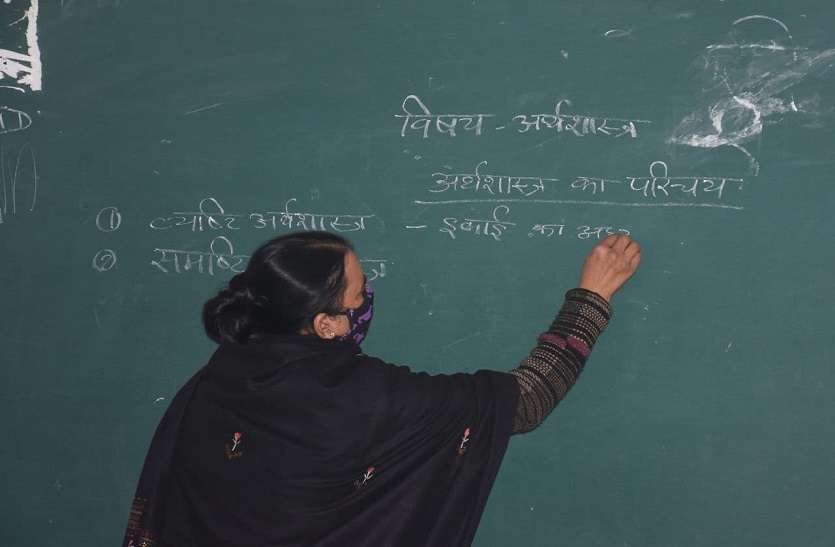 विषय - अर्थशास्त्र
अर्थशास्त्र का परिचय :
① व्यष्टि अर्थशास्त्र - इकाई का
② समष्टि